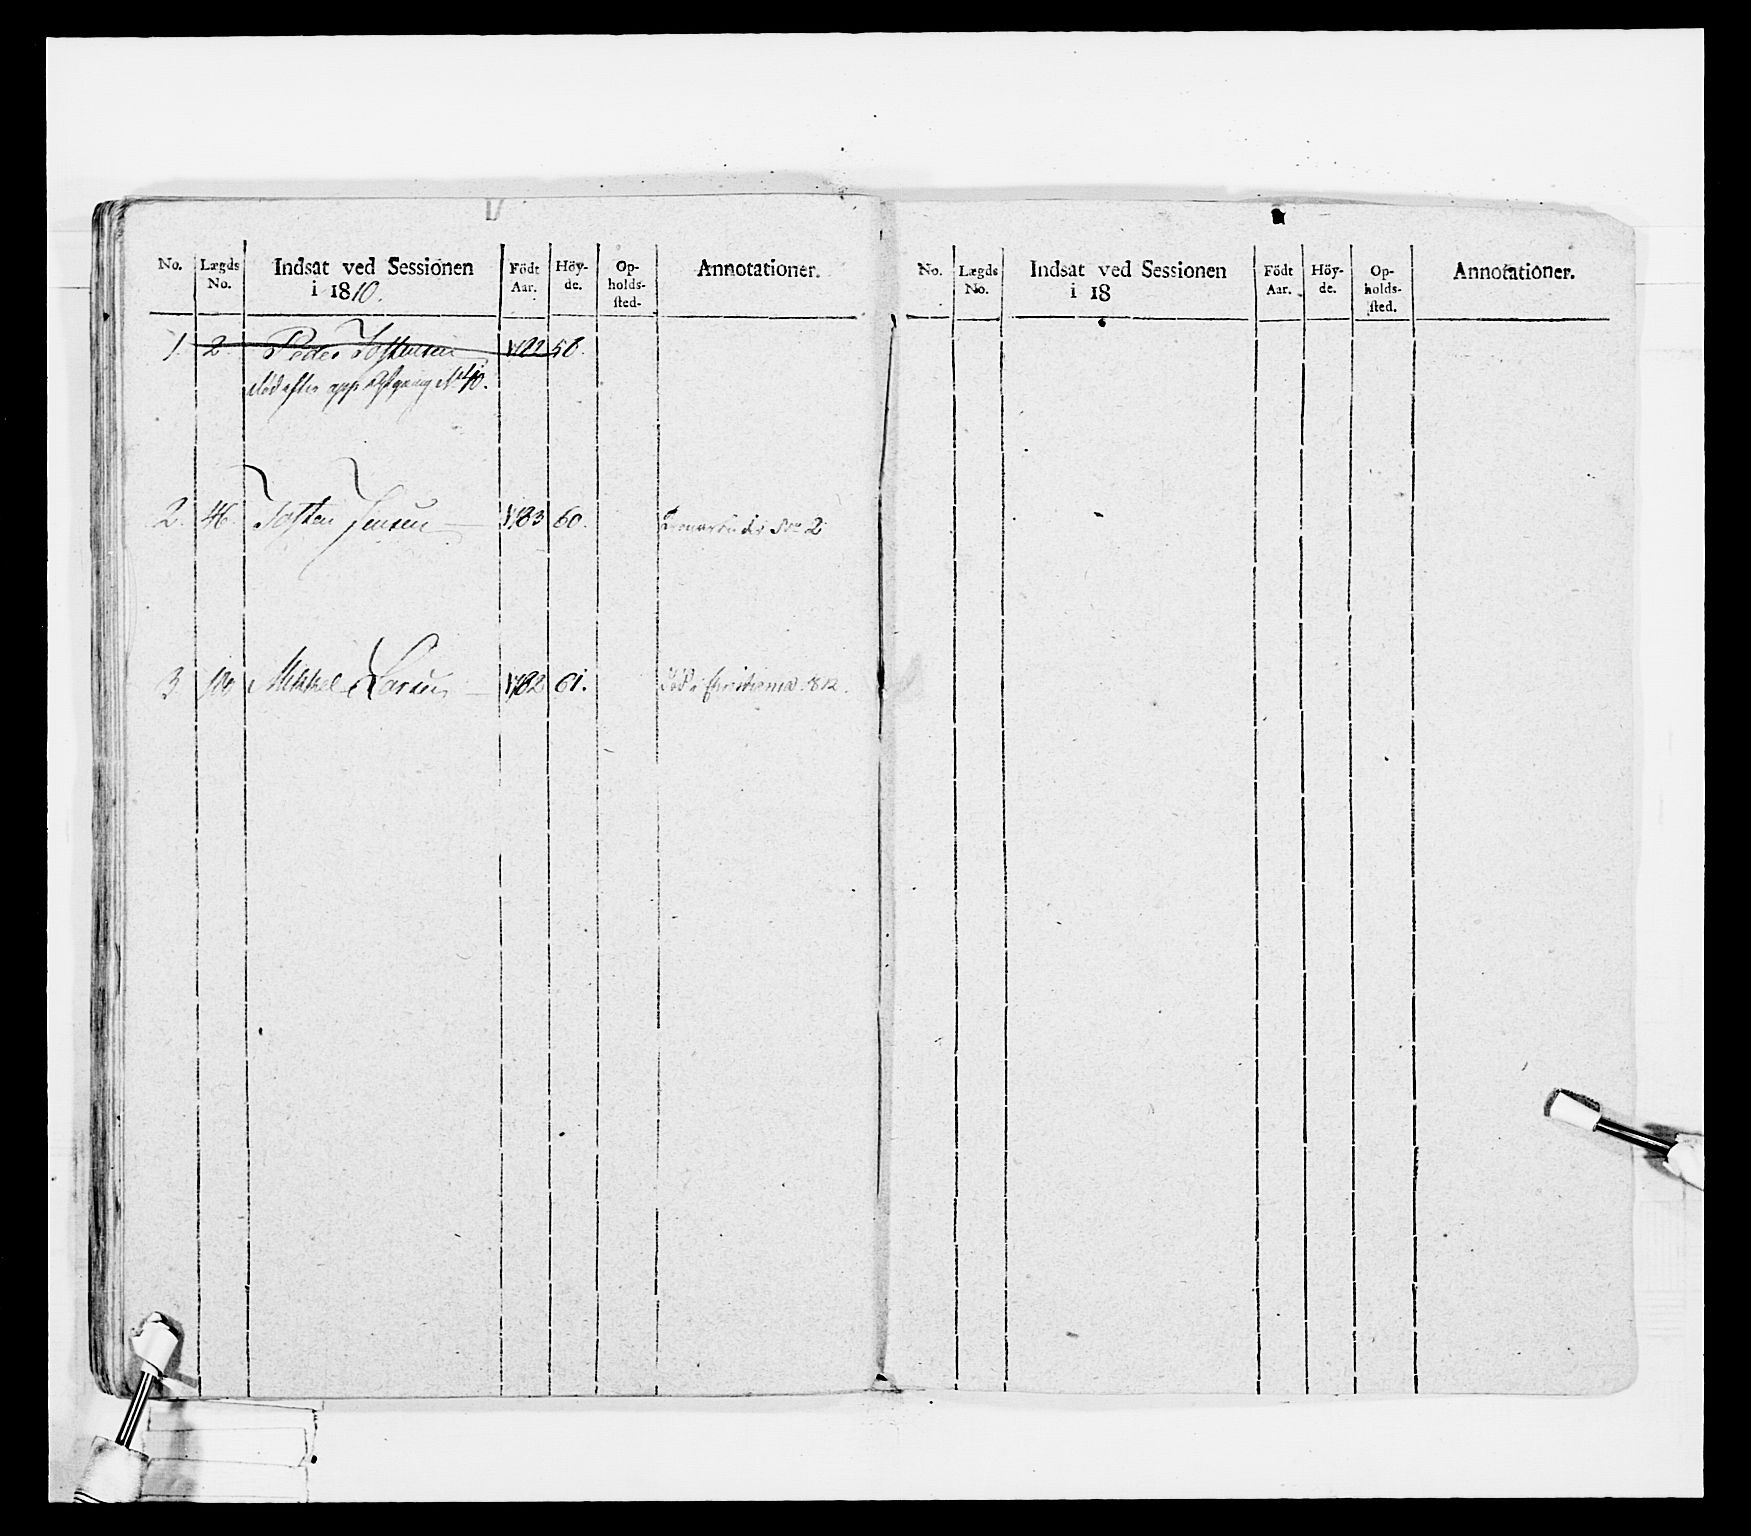 No. Lægds No. Indsat ved Sessionen i 1810. Födt Aar. Höy-de. Op-holds-sted. Annotationer.
1. 2. Peder Jostensen 1782 50.
død efter app Afgang No 40.
2. 46. Josten Jensen 1783 60. No 2
3 Mikkel Larsen 1782 61. Død i Christiania 1812.
No. Lægds No. Indsat ved Sessionen i 18 Födt Aar. Höy-de. Op-holds-sted. Annotationer.